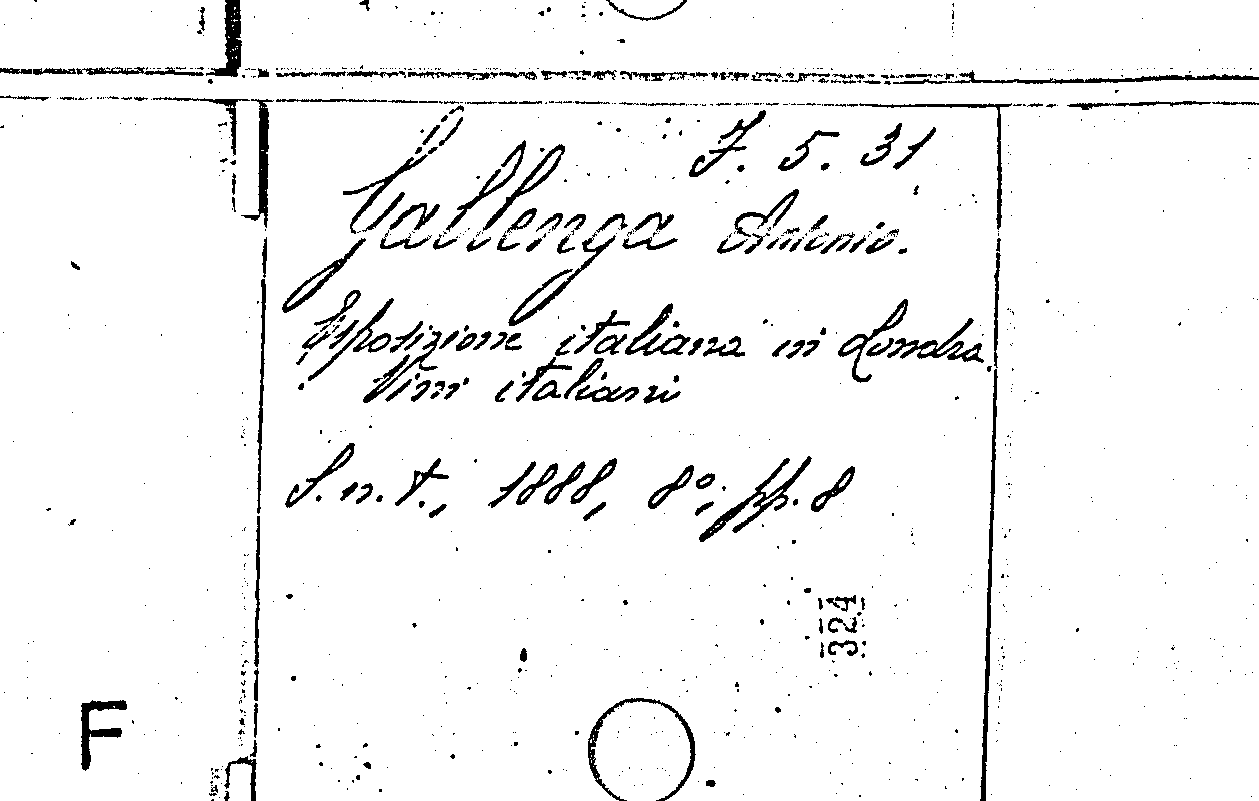 F. 5. 31
Gallenga Antonio.
Esposizione italiana in Londra.
Vini italiani
S. n. t., 1888, 8°, pp. 8
324
F